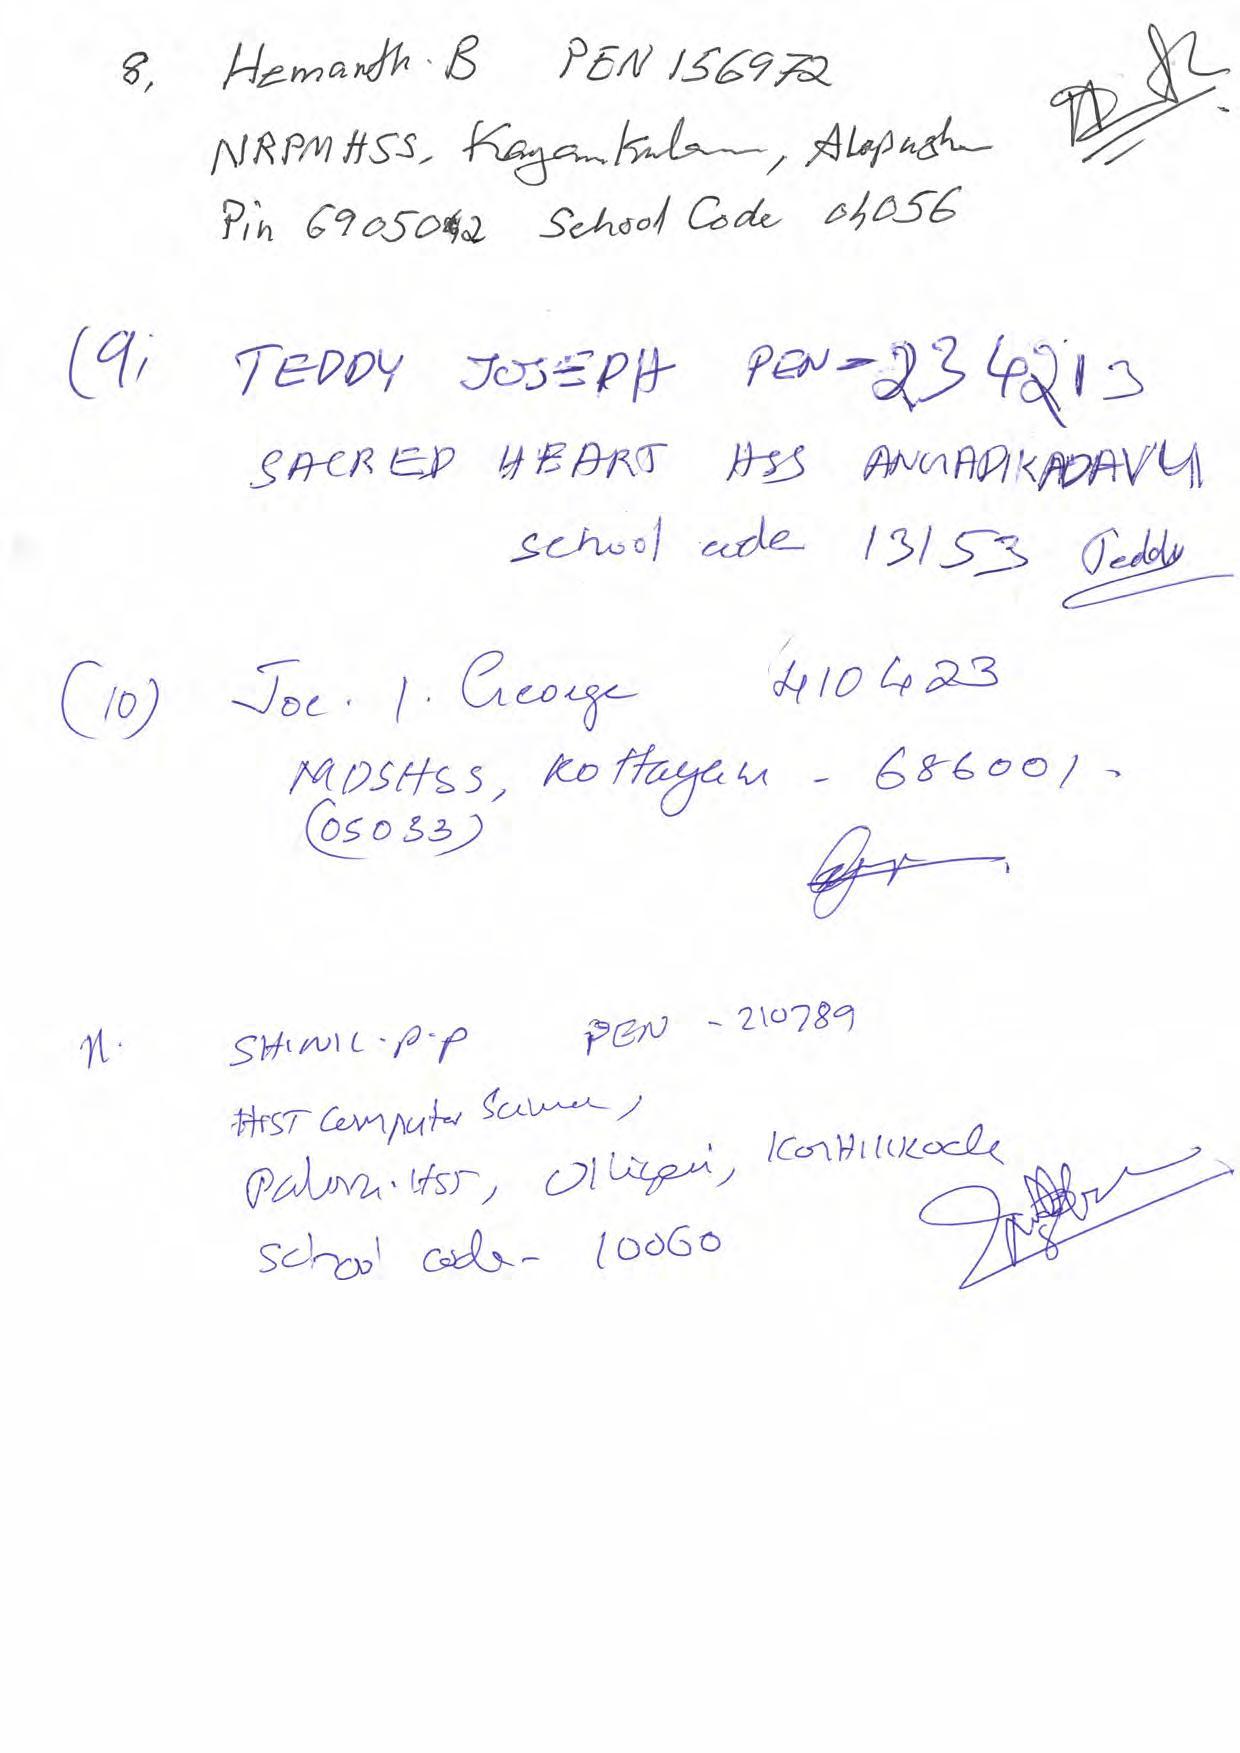 8, Hemanth. B PEN 156972
NRPMHSS, Kayamkulam, Alapuzha
Pin 690502 School Code 04056
(9; TEDDY JOSEPH PEN-234213
SACRED HEART HSS ANGADIKADAVU
school code 13153 Teddy
(10) Joe. I. George 410423
MDSHSS, Kottayam - 686001.
(05033)
11. SHINIL.P.P PEN - 210789
HSST Computer Science,
HSS, Kozhikkode
School code - 10060